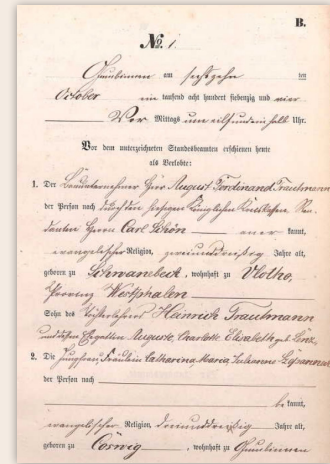 B.
No. 1.
Gumbinnen am sechszehn ten
October ein tausend acht hundert siebenzig und vier
Vor Mittags um eilf und ein halb Uhr.
Vor dem unterzeichneten Standesbeamten erschienen heute
als Verlobte:
1. Der Bauunternehmer Herr August Ferdinand Trautmann
der Person nach durch den hiesigen Königlichen Kreiskassen Ren-
danten Herrn Carl Schön anerkannt,
evangelischer Religion, zweiunddreißig Jahre alt,
geboren zu Schwanebeck, wohnhaft zu Vlotho,
Provinz Westphalen
Sohn des Heinrich Trautmann
und dessen Ehegattin Auguste, Charlotte Elisabeth geb.
2. Die Jungfrau, Fräulein Catharina, Maria, Julianne
der Person nach
bekannt,
evangelischer Religion, dreiunddreißig Jahre alt,
geboren zu Coswig, wohnhaft zu Gumbinnen